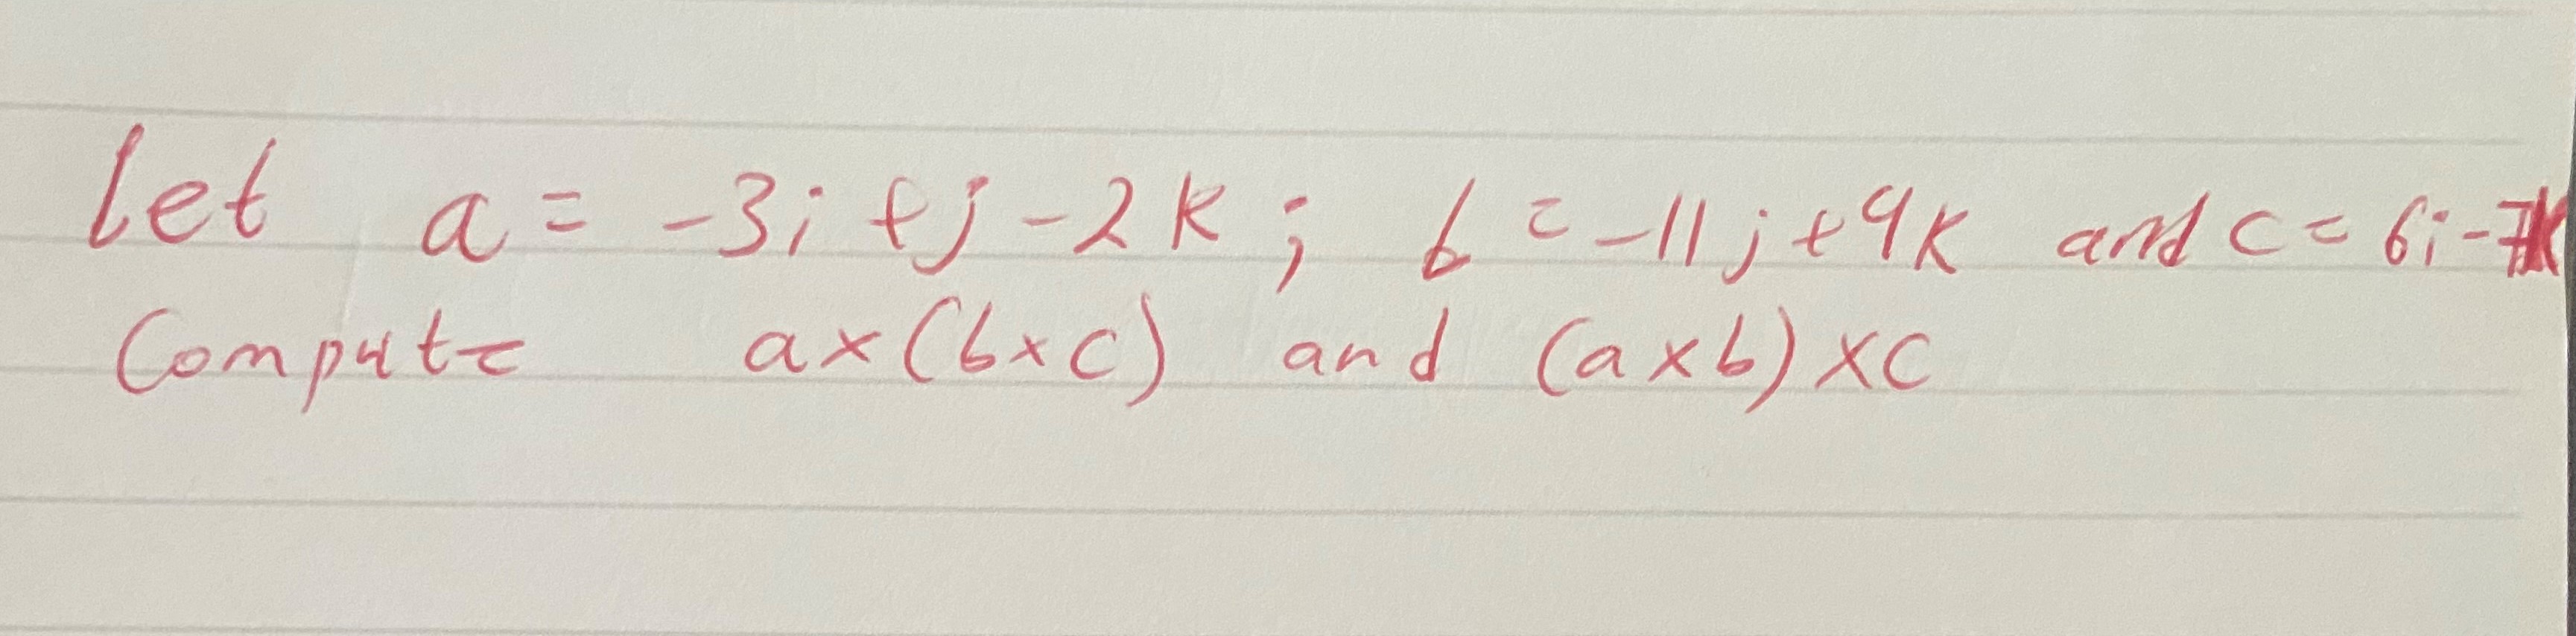 Let a = -3i + j - 2k ; b = -11j + 9k and c = 6i - 7k
Compute a×(b×c) and (a×b)×c